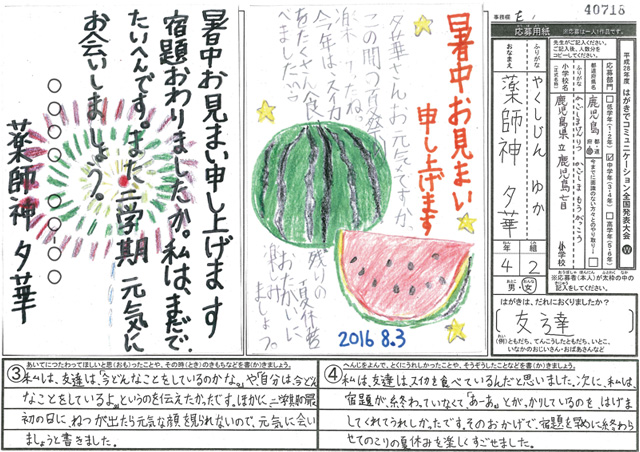 暑中お見まい申し上げます
宿題おわりましたか。私は、まだで、
たいへんです。また二学期 元気に
お会いしましょう。
薬師神 夕華
暑中お見まい
申し上げます
夕華さん、お元気ですか。
この間
今年は、
たくさん食
べました。
残りの夏休み
おたがいに
ましょう。
2016 8.3
40715
事務処
応募用紙
※応募は一人1作品です。
先生がご記入ください。
ご記入後、人数分を
コピーしてください。
平成28年度 はがきでコミュニケーション全国発表大会 W
応募部門
低学年(1・2年)
中学年(3・4年)
高学年(5・6年)
都道府県名
鹿児島
都 道 府 県
今までに面識のない方々とのやり取り
ふりがな
小学校名
鹿児島県立鹿児島
小学校
ふりがな
やくしじん ゆか
おなまえ
薬師神 夕華
年
4
組
2
男 女
※応募者(本人)が太枠の中の
記入をしてください。
はがきは、だれにおくりましたか?
(友達)
(例)ともだち、てんこうしたともだち、いとこ、
いなかのおじいさん・おばあさんなど
あいてにつたわってほしいと思(おも)ったことや、その時(とき)のきもちなどを書(か)きましょう。
③私は、友達は、「今どんなことをしているのかな。」や「自分は、今どん
なことをしているよ。」というのを伝えたかったです。ほかに、二学期の最
初の日に、ねつが出たら元気な顔を見られないので、元気に会い
ましょうと書きました。
へんじをよんで、とくにうれしかったことや、そうぞうしたことなどを書(か)きましょう。
④私は、友達は、スイカを食べているんだと思いました。次に、私は、
宿題が、終わっていなくて、「あーあ。」とがっかりしているのを、はげま
してくれてうれしかったです。そのおかげで、宿題を早めに終わら
せてのこりの夏休みを楽しくすごせました。